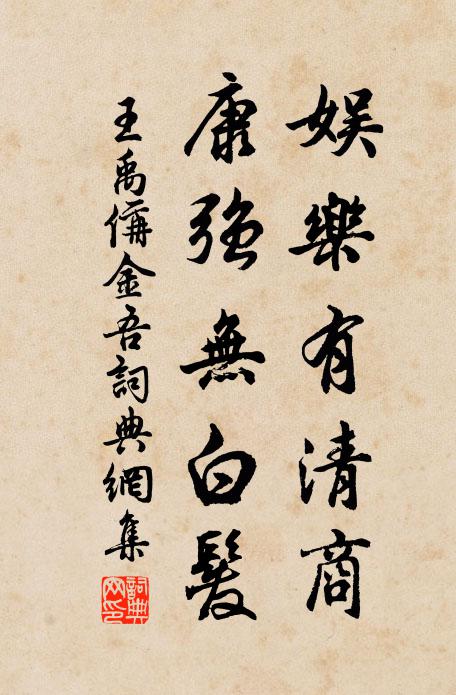 娯樂有清商
康強無白髮
王禹偁金吾詞典網集
詞典網印